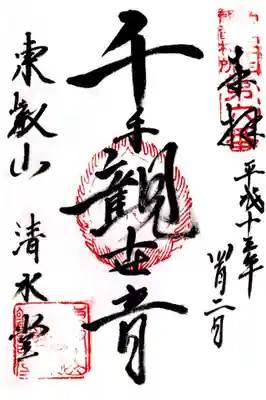 奉拝
平成十五年
四月二日
千手観世音
東叡山 清水堂